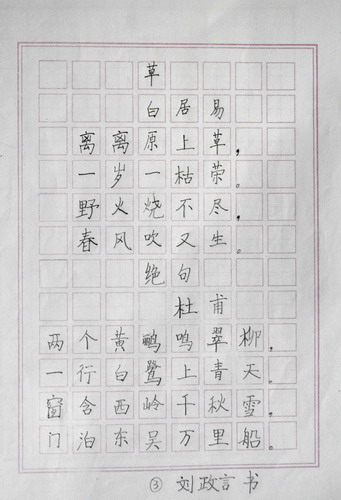 草
白居易
离离原上草，
一岁一枯荣。
野火烧不尽，
春风吹又生。
绝句
杜甫
两个黄鹂鸣翠柳，
一行白鹭上青天。
窗含西岭千秋雪，
门泊东吴万里船。
③ 刘政言书